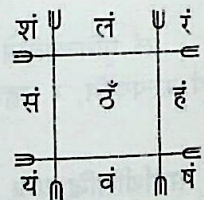 शं लं रं
सं ठँ हं
यं वं षं